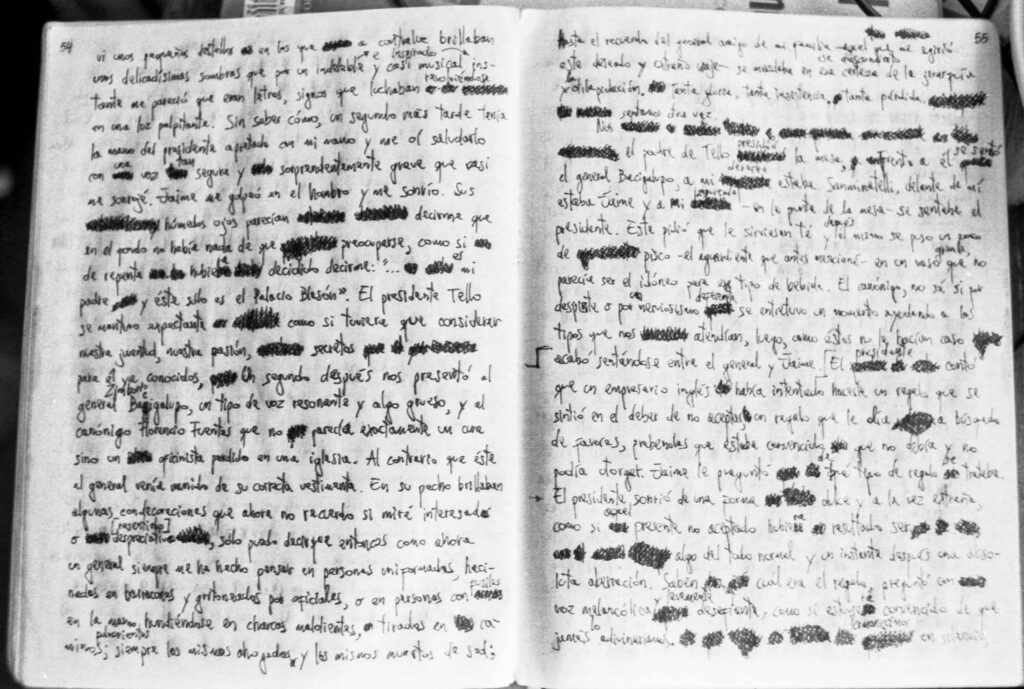 54
vi unos pequeños destellos en los que a contraluz brillaban
unas delicadísimas sombras que por un indeleble e inspirado y casi musical ins-
tante me pareció que eran letras, signos que luchaban revolviéndose
en una luz palpitante. Sin saber cómo, un segundo más tarde tenía
la mano del presidente apretada con mi mano y me oí saludarlo
con una voz tan segura y sorprendentemente grave que casi
me sonrojé. Jaime me golpeó en el hombro y me sonrió. Sus
húmedos ojos parecían decirme que
en el fondo no había nada de que preocuparse, como si
de repente hubiera decidido decirme: "... es mi
padre y éste sólo es el Palacio Blasón". El presidente Tello
se mantuvo expectante como si tuviera que considerar
nuestra juventud, nuestra pasión, secretos
para él ya conocidos, Un segundo después nos presentó al
general Bacigalupo, un tipo de voz resonante y algo grueso, y al
canónigo Florencio Fuentes que no parecía exactamente un cura
sino un oficinista perdido en una iglesia. Al contrario que éste
el general venía munido de su correcta vestimenta. En su pecho brillaban
algunas condecoraciones que ahora no recuerdo si miré interesado
o [resentido] despreciativo, sólo puedo decir que entonces como ahora
un general siempre me ha hecho pensar en personas uniformadas, haci-
nadas en barracones y gritoneadas por oficiales, o en personas con fusiles
en la mano, hundiéndose en charcos malolientes, o tiradas en ca-
minos polvorientos; siempre los mismos ahogados, y los mismos muertos de sed;
55
hasta el recuerdo del general amigo de mi familia -aquel que me sugirió
este deseado y extraño viaje- se mezclaba en esa certeza de la jerarquía
y dilapidación, tanta gloria, tanta insistencia, tanta pérdida.
Nos sentamos otra vez.
el padre de Tello presidió la mesa, enfrente a él se sentó
el general Bacigalupo, a mi derecha estaba Sanminatelli, delante de mí
estaba Jaime y a mi izquierda -en la punta de la mesa- se sentaba el
presidente. Este pidió que le sirviesen té y después él mismo se puso un poco
de pisco -el aguardiente que antes mencioné- en un vaso grande que no
parecía ser el idóneo para ese tipo de bebida. El canónigo, no sé si por
despiste o por nerviosismo o deferencia se entretuvo un momento ayudando a los
tipos que nos atendían, luego, como éstos no le hacían caso
acabó sentándose entre el general y Jaime. [El presidente contó
que un empresario inglés había intentado hacerle un regalo que se
sintió en el deber de no aceptar, un regalo que le olía a búsqueda
de favores, prebendas que estaba convencido que no debía y no
podía otorgar. Jaime le preguntó de qué tipo de regalo se trataba.
El presidente sonrió de una forma dulce y a la vez extraña,
como si aquel presente no aceptado hubiera resultado ser
algo del todo normal y un instante después una abso-
luta aberración. Saben cuál era el regalo, preguntó con
voz melancólica levemente desafiante, como si estuviera convencido de que
jamás lo adivinaríamos. en silencio,